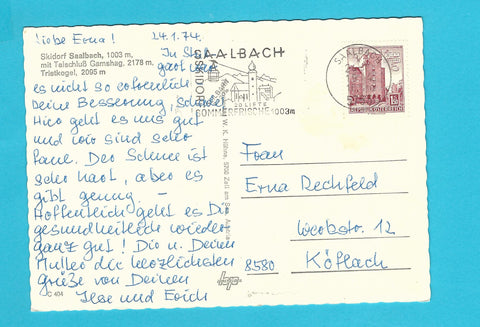 Liebe Erna! 24.1.74.
Skidorf Saalbach, 1003 m,
mit Talschluß Gamshag. 2178 m,
Tristkogel, 2095 m
es nicht so
Deine Besserung,
Hier geht es uns gut
und wir sind sehr
Der Schnee ist
sehr hart, aber es
gibt genug. –
Hoffentlich geht es Dir
gesundheitlich wieder
ganz gut! Dir u. Deiner
Mutter die herzlichsten
Grüße von Deinen
Ilse und Erich
C 404
SAALBACH
SKIDORF
IDEALSTE
SOMMERFRISCHE 1003m
SAALBACH
REPUBLIK ÖSTERREICH
Frau
Erna Rechfeld
Webstr. 12
8580 Köflach